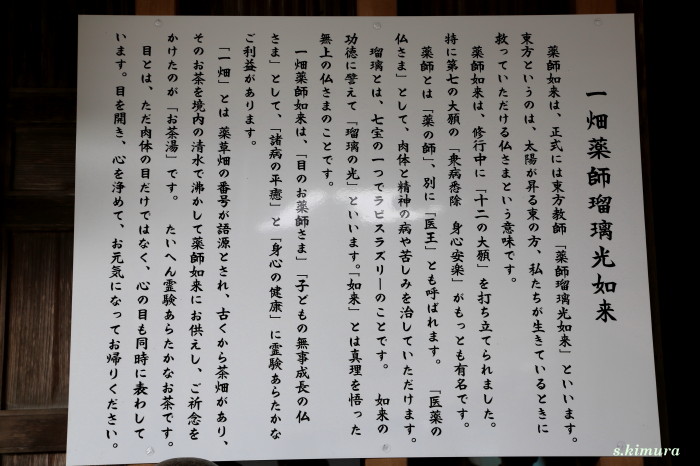 一畑薬師瑠璃光如来
薬師如来は、正式には東方教師「薬師瑠璃光如来」といいます。
東方というのは、太陽が昇る東の方、私たちが生きているときに
救っていただける仏さまという意味です。
薬師如来は、修行中に「十二の大願」を打ち立てられました。
特に第七の大願の「衆病悉除　身心安楽」がもっとも有名です。
薬師とは「薬の師」、別に「医王」とも呼ばれます。　「医薬の
仏さま」として、肉体と精神の病や苦しみを治していただけます。
瑠璃とは、七宝の一つでラピスラズリーのことです。　如来の
功徳に譬えて「瑠璃の光」といいます。「如来」とは真理を悟った
無上の仏さまのことです。
一畑薬師如来は、「目のお薬師さま」「子どもの無事成長の仏
さま」として、「諸病の平癒」と「身心の健康」に霊験あらたかな
ご利益があります。
「一畑」とは 薬草畑の番号が語源とされ、古くから茶畑があり、
そのお茶を境内の清水で沸かして薬師如来にお供えし、ご祈念を
かけたのが「お茶湯」です。　たいへん霊験あらたかなお茶です。
目とは、ただ肉体の目だけではなく、心の目も同時に表わして
います。目を開き、心を浄めて、お元気になってお帰りください。
s.kimura